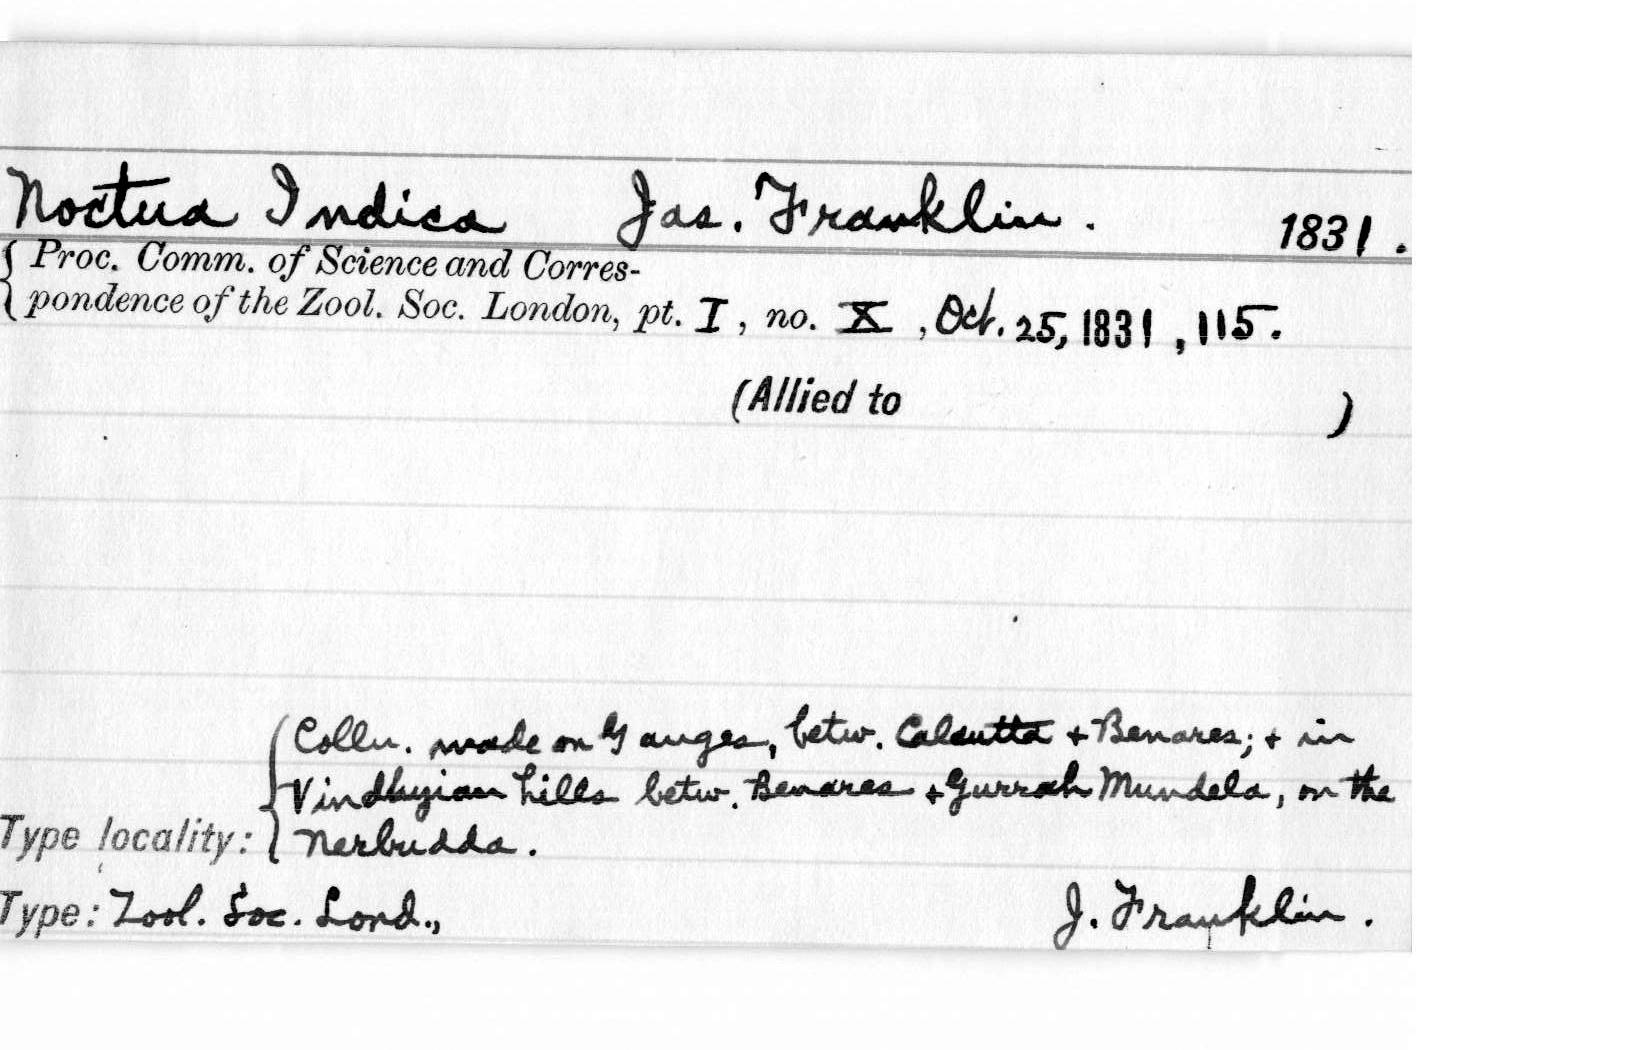 Noctua Indica Jas. Franklin. 1831.
Proc. Comm. of Science and Corres-
pondence of the Zool. Soc. London, pt. I, no. X, Oct. 25, 1831, 115.
(Allied to )
Colln. made on Ganges, betw. Calcutta + Benares; + in
Vindhyian hills betw. Benares + Gurrah Mundela, on the
Type locality: Nerbudda.
Type: Zool. Soc. Lond., J. Franklin.